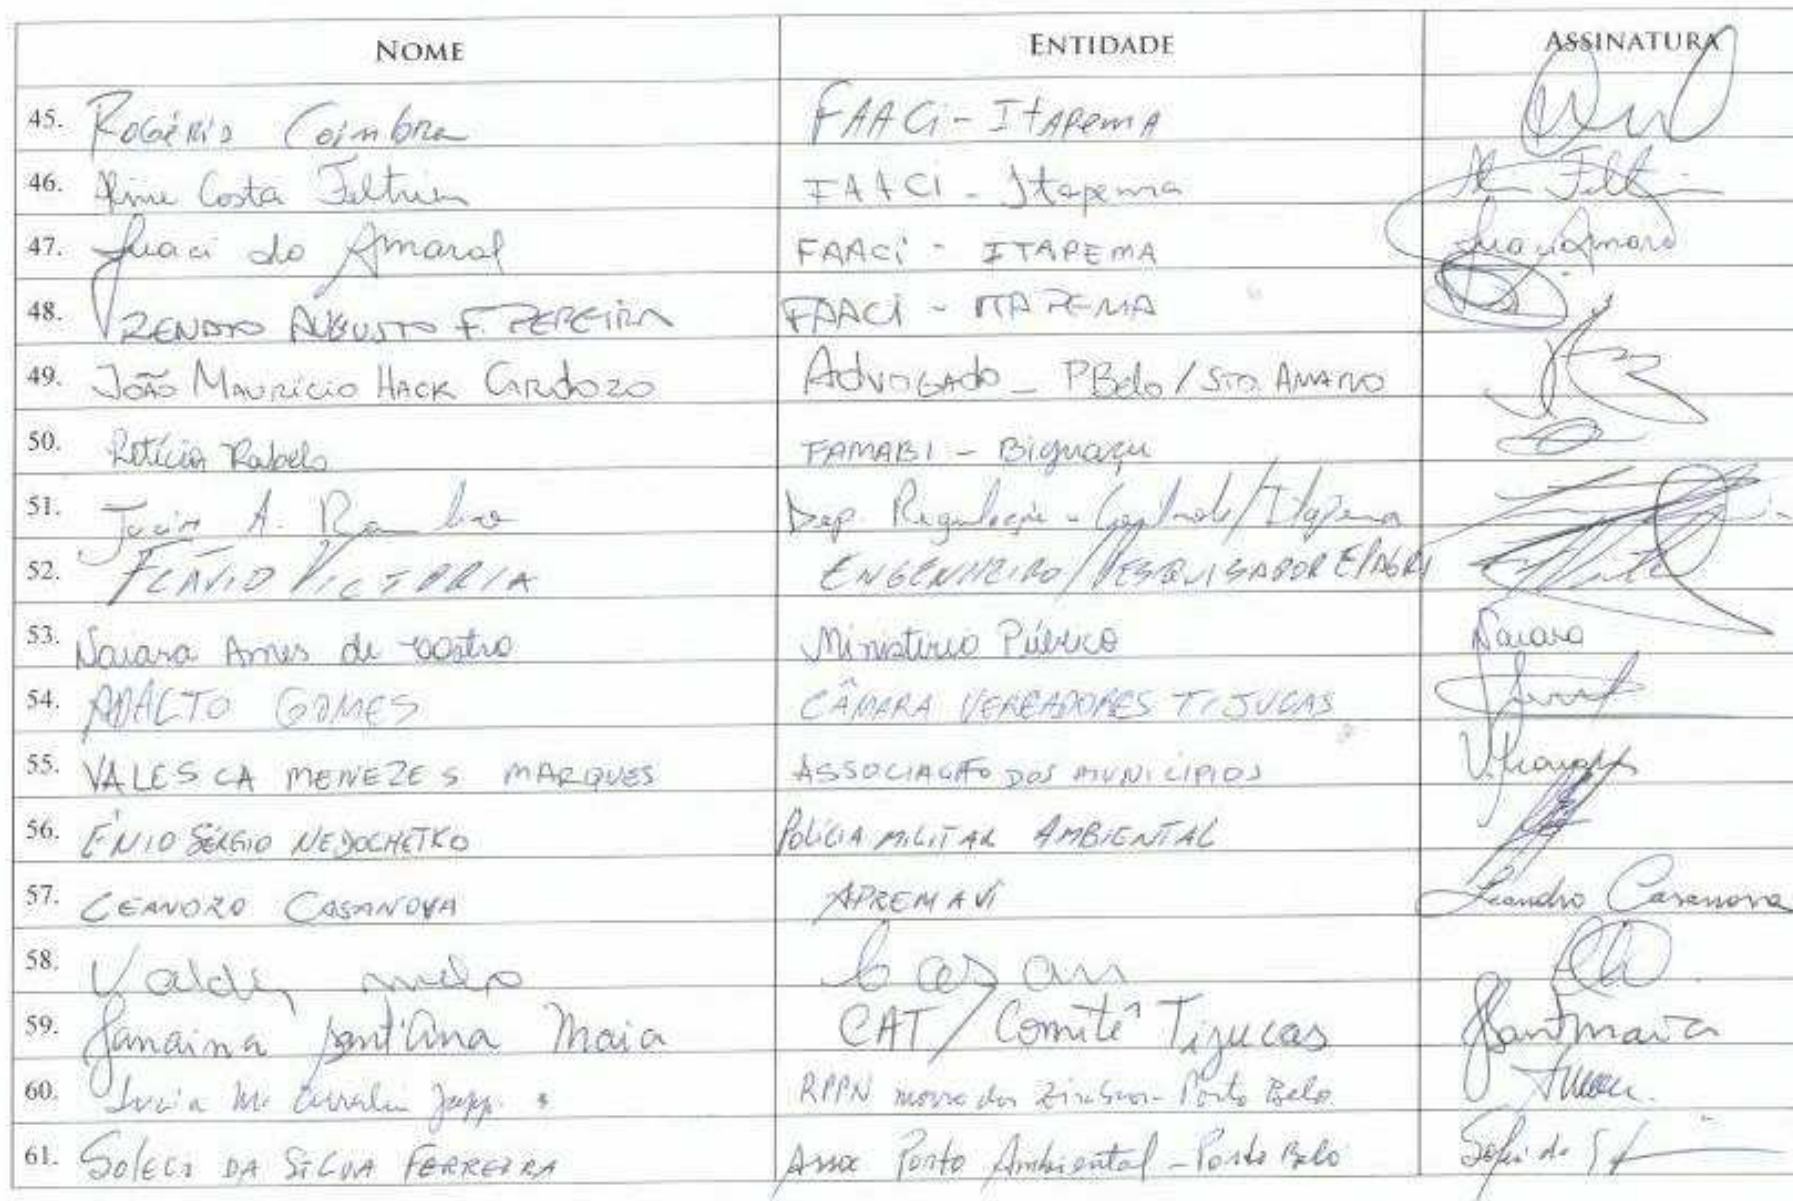 NOME ENTIDADE ASSINATURA
45. Rogério Coimbra FAACi - Itapema
46. Aline Costa Feltrim FAACI - Itapema
47. Juaci do Amaral FAACi - ITAPEMA Juaci Amaral
48. RENATO AUGUSTO F. PEREIRA FAACI - ITAPEMA
49. João Maurício Hack Cardozo Advogado - PBelo / Sto. Amaro
50. Letícia Rabelo FAMABI - Biguaçu
51. A. Dep. Regulação - / Itapema
52. FLÁVIO VICTORIA ENGENHEIRO / PESQUISADOR EPAGRI
53. Naiara de Castro Ministério Público Naiara
54. ADALTO GOMES CÂMARA VEREADORES TIJUCAS
55. VALESCA MENEZES MARQUES ASSOCIAÇÃO DOS MUNICÍPIOS
56. ÊNIO SÉRGIO NEDOCHETKO POLÍCIA MILITAR AMBIENTAL
57. LEANDRO CASANOVA APREMAVI Leandro Casanova
58. Valdir melo Casan
59. Janaina Sant'Ana Maia CAT / Comitê Tijucas
60. Lucia RPPN morro dos Zimbros - Porto Belo
61. SOLECI DA SILVA FERREIRA Assoc Porto Ambiental - Porto Belo